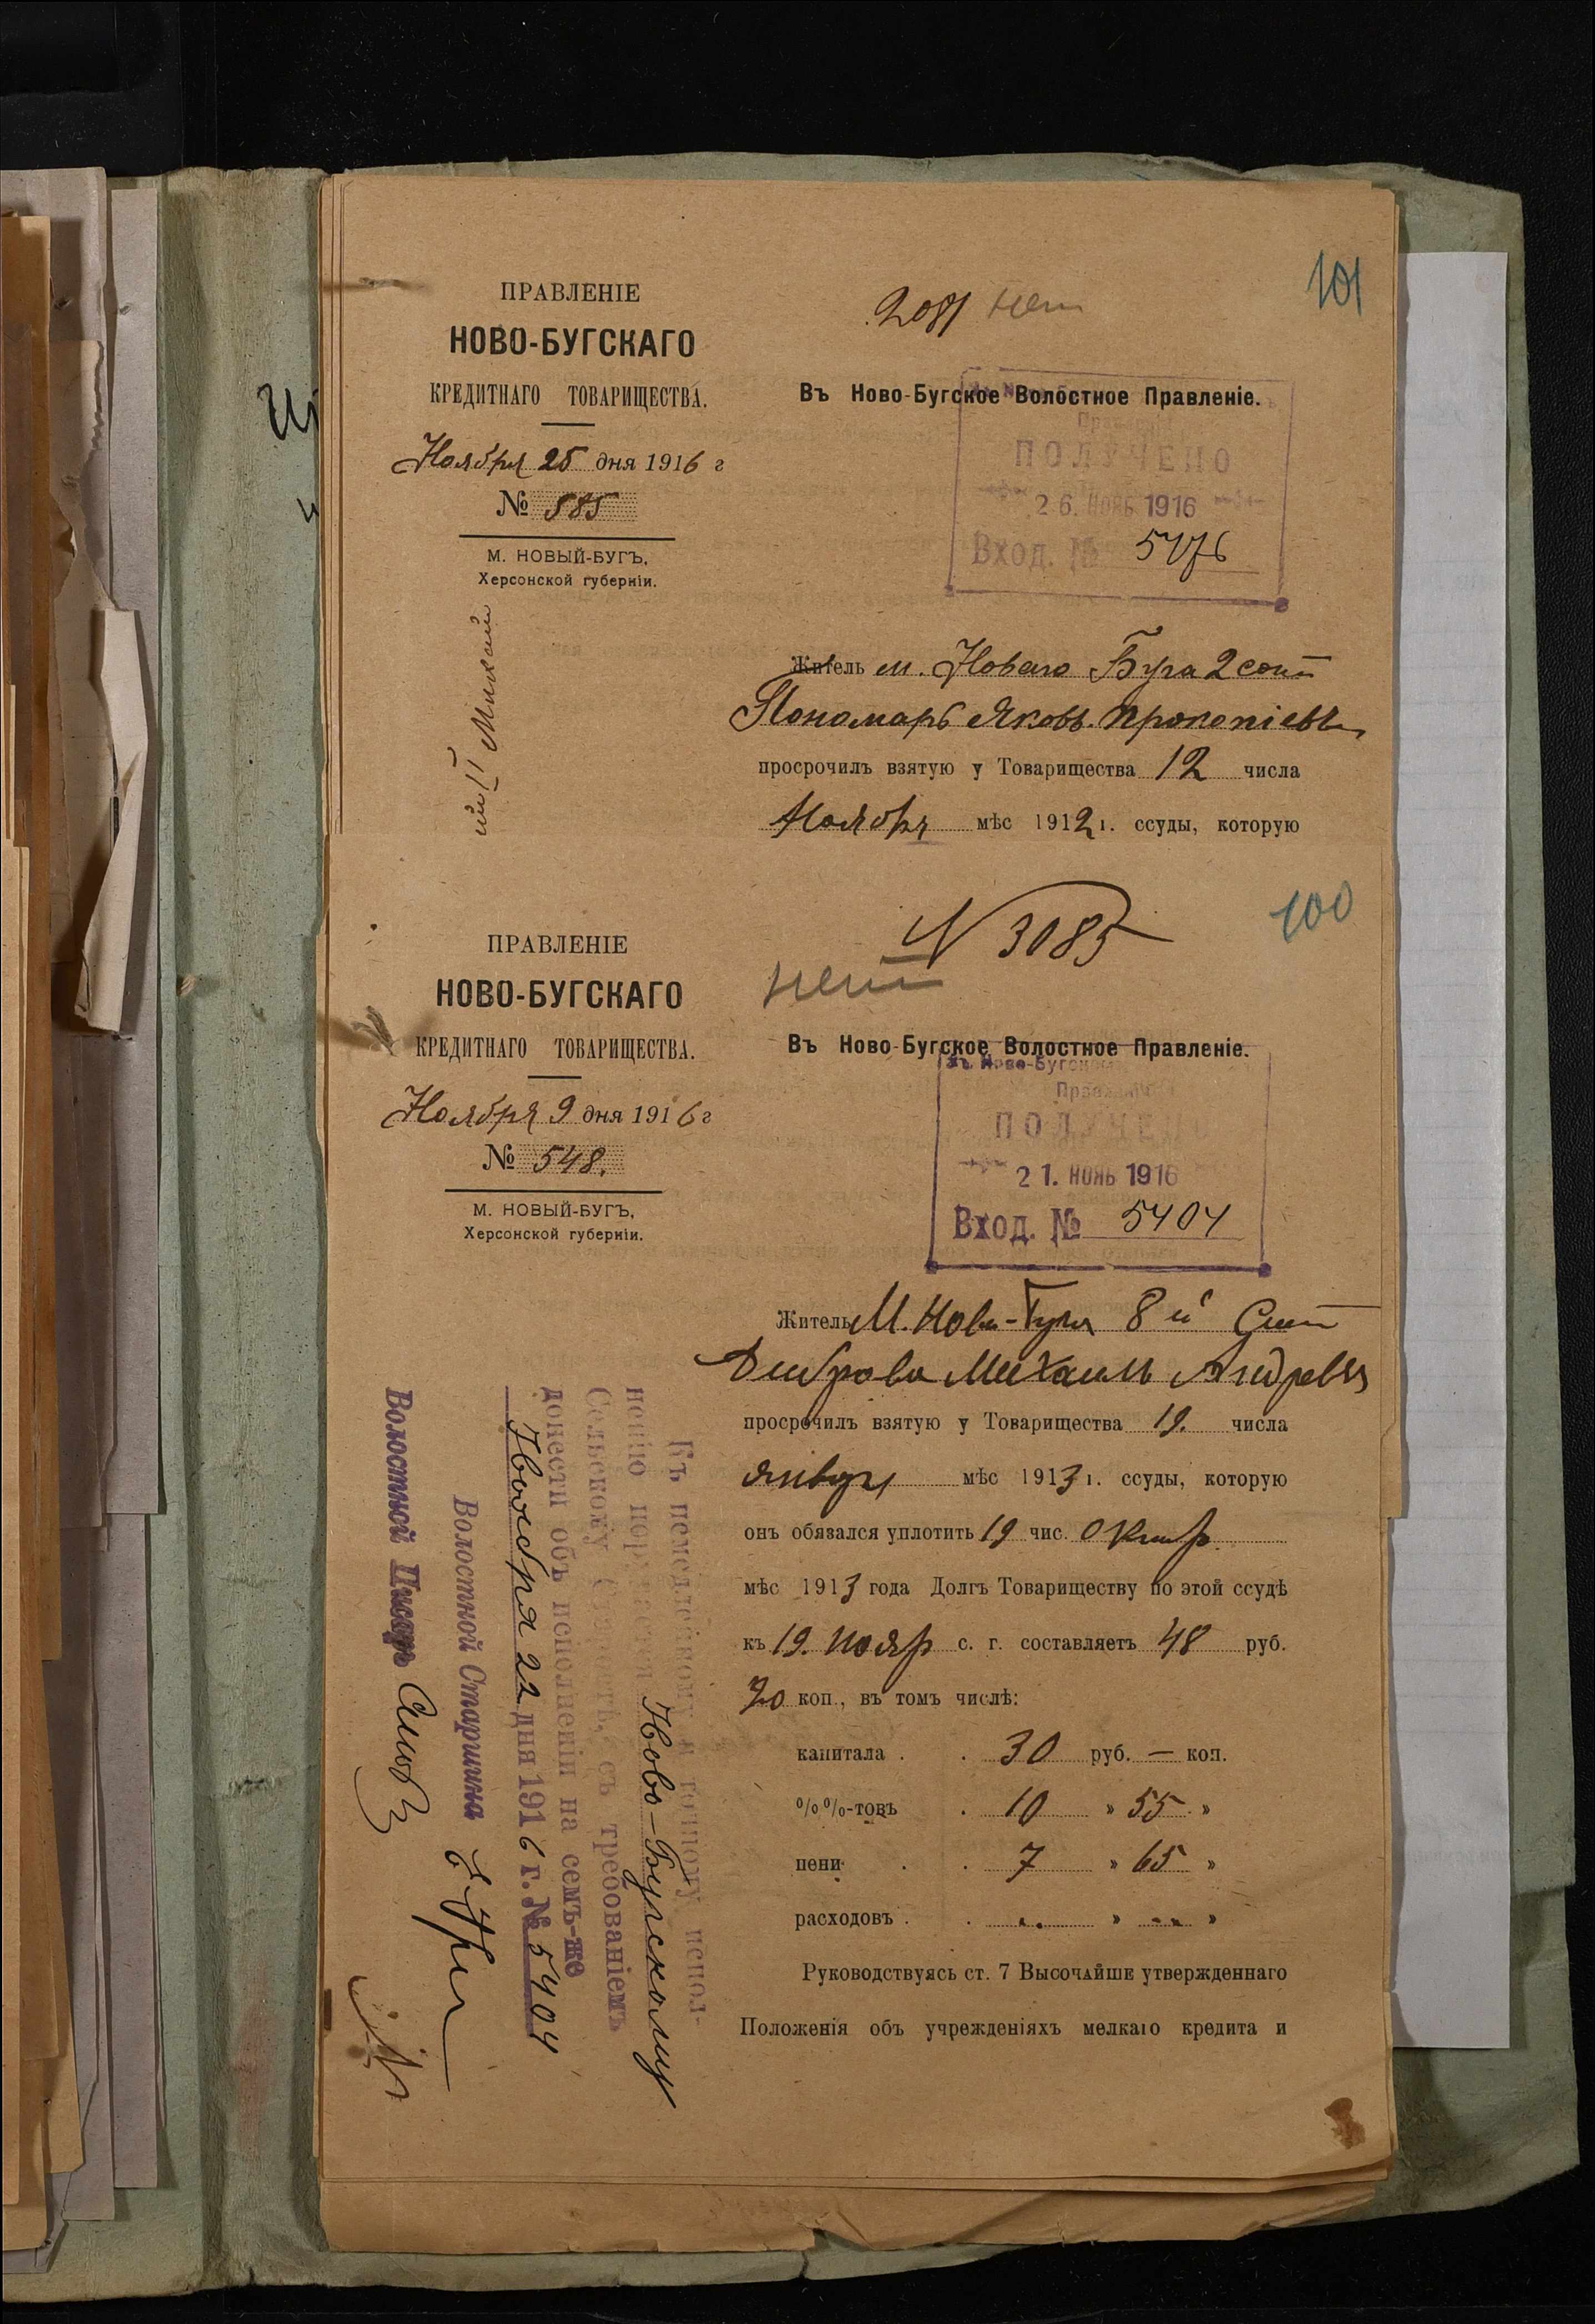 101
2081 нет
ПРАВЛЕНІЕ
НОВО-БУГСКАГО
КРЕДИТНАГО ТОВАРИЩЕСТВА.
Ноября 25 дня 1916 г
№ 585
М. НОВЫЙ-БУГЪ,
Херсонской губерніи.
Въ Ново-Бугское Волостное Правленіе.
ПОЛУЧЕНО
26. НОЯБ 1916
Вход. № 5476
Житель м. Новаго Буга 2 сот
Пономарь Яковъ Прокопіевъ
просрочилъ взятую у Товарищества 12 числа
Ноября мѣс 1912 г. ссуды, которую
100
N 3085
нет
ПРАВЛЕНІЕ
НОВО-БУГСКАГО
КРЕДИТНАГО ТОВАРИЩЕСТВА.
Ноября 9 дня 1916 г
№ 548.
М. НОВЫЙ-БУГЪ,
Херсонской губерніи.
Въ Ново-Бугское Волостное Правленіе.
ПОЛУЧЕН
21. НОЯБ 1916
Вход. № 5404
Житель М. Ново-Буга 8й Сот
Михаилъ Андревъ
просрочилъ взятую у Товарищества 19. числа
январ мѣс 1913 г. ссуды, которую
онъ обязался уплотить 19 чис. Октяр
мѣс 1913 года Долгъ Товариществу по этой ссудѣ
къ 19. Нояр с. г. составляетъ 48 руб.
20 коп., въ томъ числѣ:
капитала . . 30 руб. — коп.
%%-товъ . 10 » 55 »
пени . . 7 » 65 »
расходовъ . . » »
Руководствуясь ст. 7 Высочайше утвержденнаго
Положенія объ учрежденіяхъ мелкаго кредита и
Къ немедленному и точному испол-
ненію Ново-Бугскому
Сельскому съ требованіемъ
донести объ исполненіи на семъ-же
Ноября 22 дня 1916 г. № 5404
Волостной Старшина
Волостной Писарь